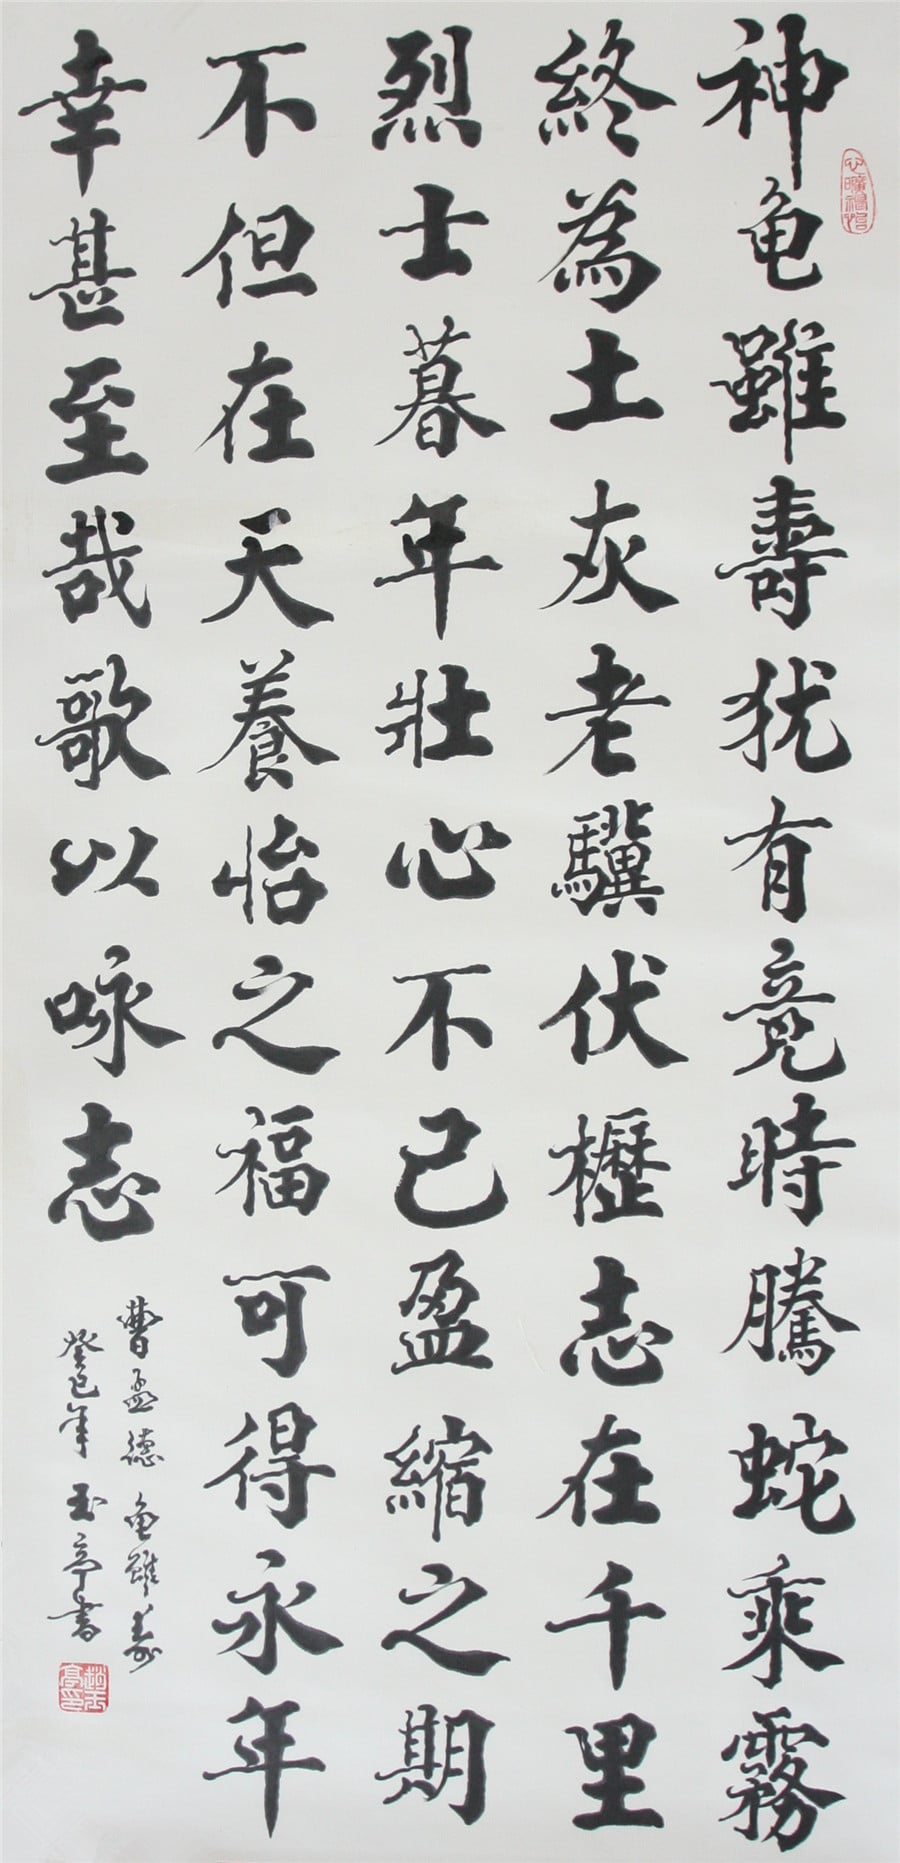 心曠神怡
神龟雖壽犹有竟時騰蛇乘霧
終為土灰老驥伏櫪志在千里
烈士暮年壯心不已盈縮之期
不但在天養怡之福可得永年
幸甚至哉歌以咏志
曹孟德 龟雖寿
癸巳年 玉亭書
趙玉亭印